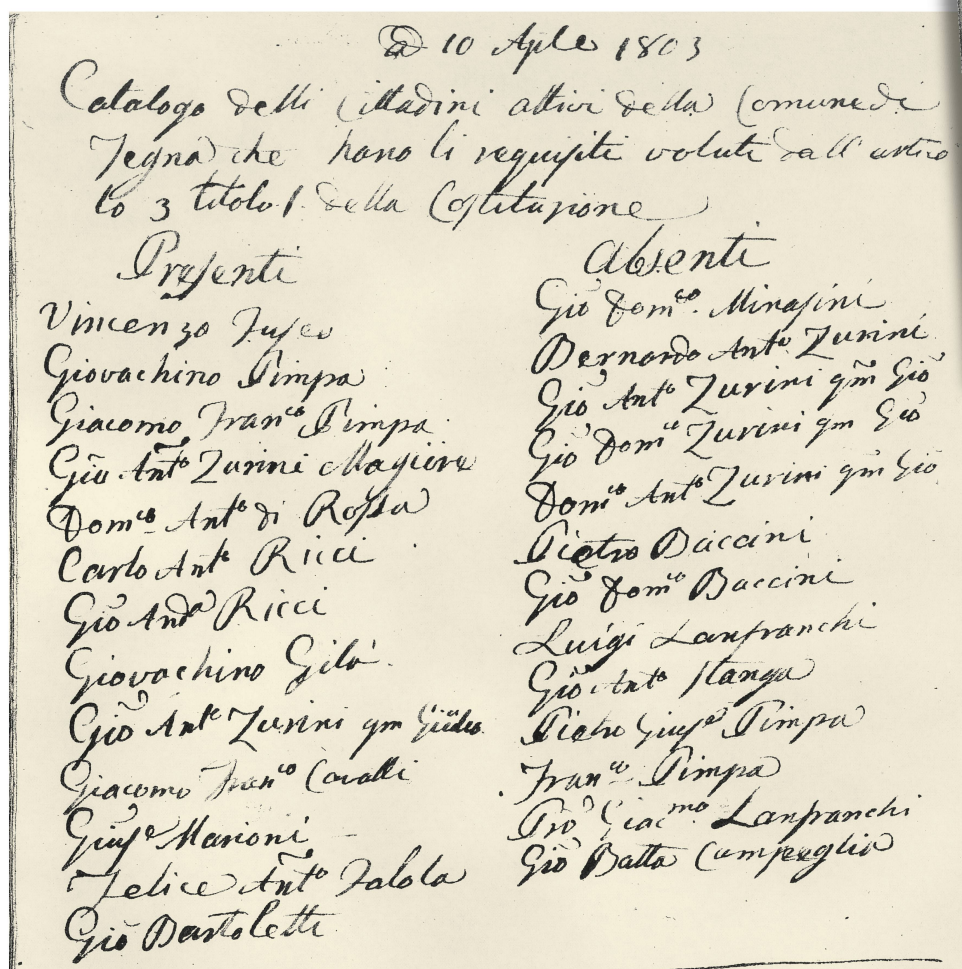 ad 10 Aple 1803
Catalogo delli Cittadini attivi della Comune di
Tegna che hano li requisiti voluti dall' artico
lo 3 titolo 1. della Costituzione
Presenti
Vincenzo Fuseo
Giovachino Pimpa
Giacomo Franco Pimpa
Gio Anto Zurini Magiore
Domco Anto di Rossa
Carlo Anto Ricci
Gio Anda Ricci
Giovachino Gilà
Gio Anto Zurini qm
Giacomo Franco Cavalli
Giuse Marioni
Felice Anto Falola
Gio Bartoletti
Absenti
Gio Domco. Minasini
Bernardo Anto Zurini
Gio Anto Zurini qm Gio
Gio Domco Zurini qm Gio
Domco Anto Zurini qm Gio
Pietro Baccini
Gio Domco Baccini
Luigi Lanfranchi
Gio Anto Stanga
Pietro Giuse Pimpa
Franco Pimpa
Pro Giacmo Lanfranchi
Gio Batta Campeglio